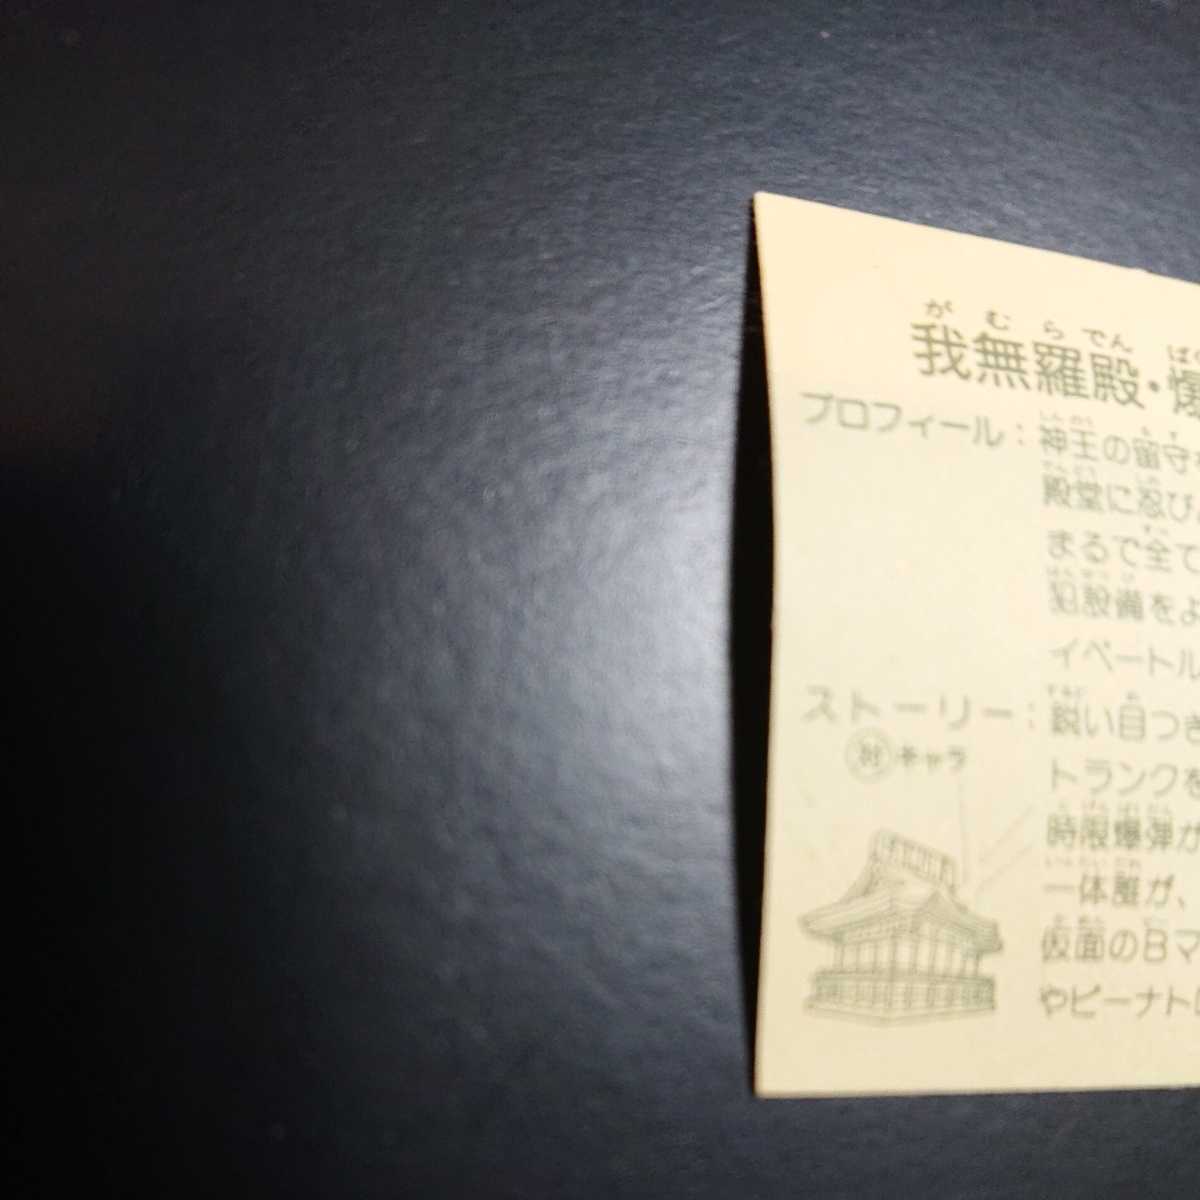 がむらでん
我無羅殿・爆
プロフィール：神王の留守
殿堂に忍び
まるで全て
犯設備をよ
イペートル
ストーリー：鋭い目つき
対キャラ
トランクを
時限爆弾が
一体誰が、
仮面のBマ
やピーナト